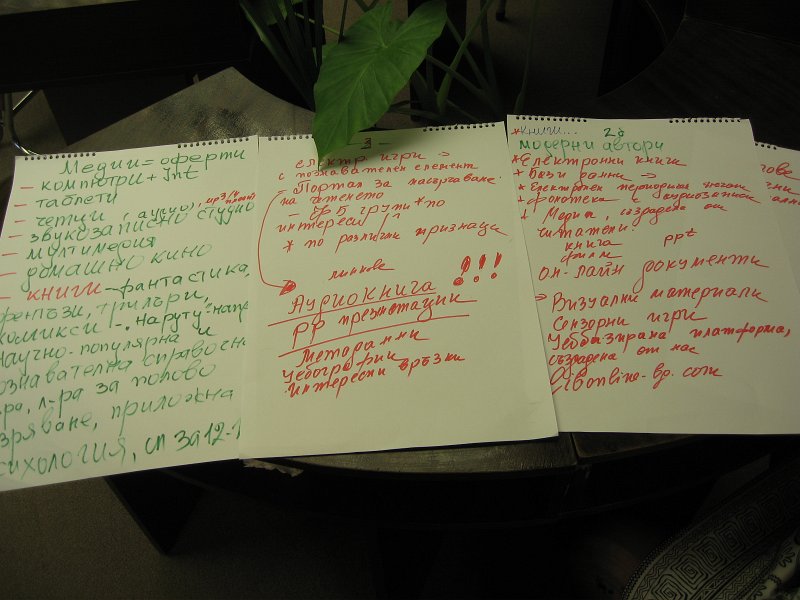 Медии = оферти
– компютри + Int
– таблети
– четци (аудио), mp3/4
– звукозаписно студио
– мултимедия
– домашно кино
– книги – фантастика,
фентъзи, трилъри,
комикси -. Наруту-
научно-популярна и
ознавателна справочна
л-ра за полово
зряване, приложна
сихология, сп за 12-1
– 3 –
електр. игри
с познавателен елемент
– Портал за насърчаване
на четенето
– ФБ групи * по
интереси
* по различни признаци
линкове
Аудиокнига !!!
PP презнетации
Меторанми
Уебографии
интересни връзки
*Книги... 2а
модерни автори
* Електронни книги
* бази данни
* Електронен периодичен
* фонотека с аудиозаписи
Медия, създадена от
читатели:
книга
филм ppt
он-лайн документи
Визуални материали
Сензорни игри
Уеббазирана платформа,
създадена от нас
Libonline-bg.com